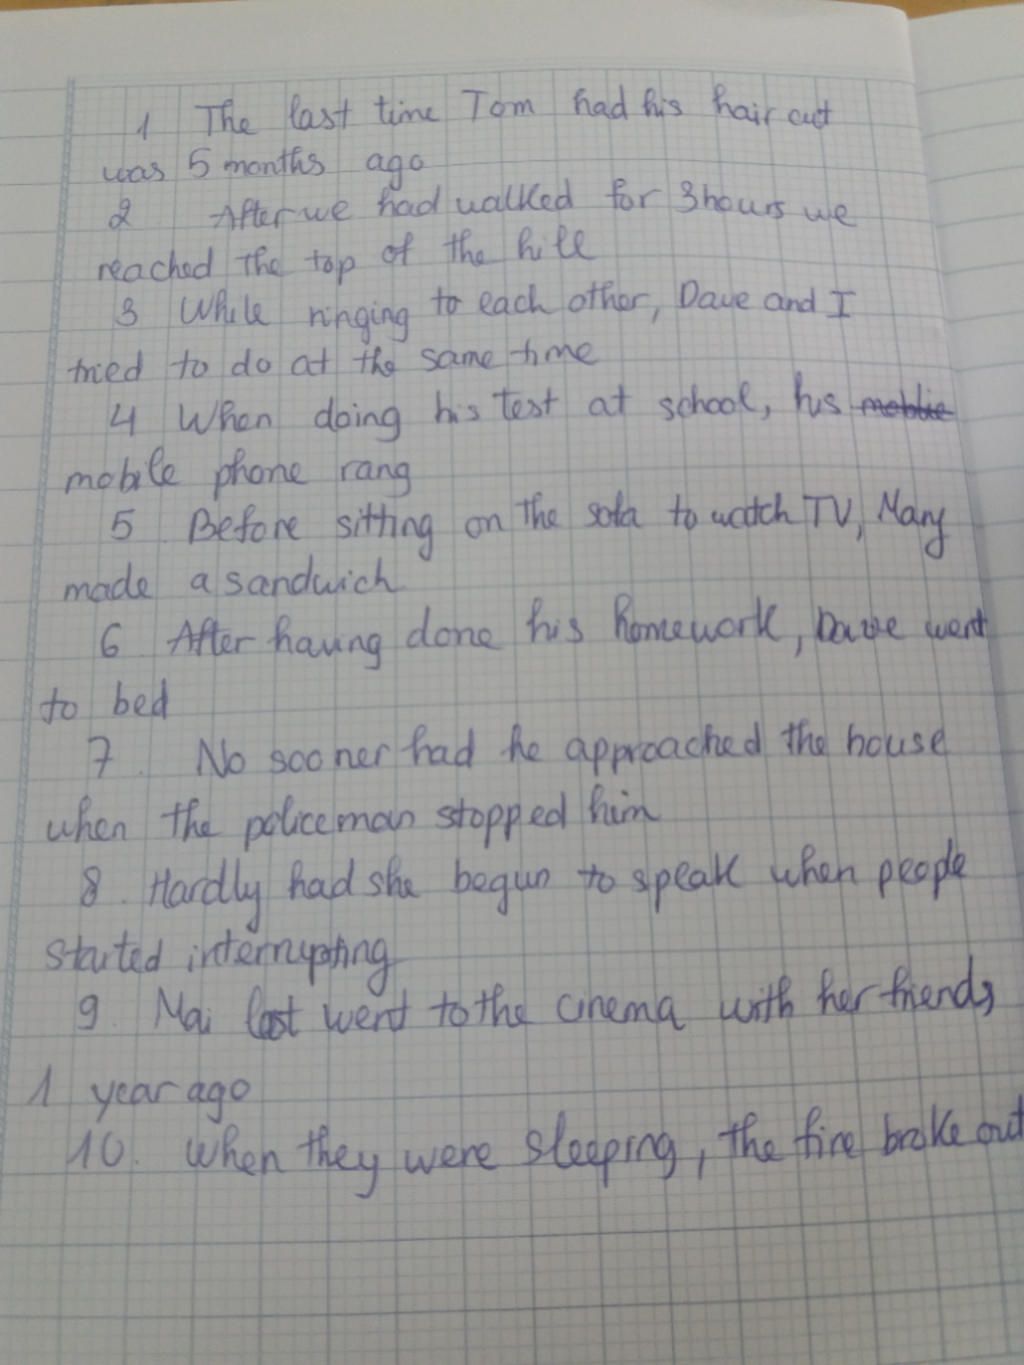 1 The last time Tom had his hair cut
was 5 months ago
2 After we had walked for 3 hours we
reached the top of the hill
3 While ringing to each other, Dave and I
tried to do at the same time
4 When doing his test at school, his moblie
mobile phone rang
5 Before sitting on the sofa to watch TV, Mary
made a sandwich
6 After having done his homework, Dave went
to bed
7. No sooner had he approached the house
when the policeman stopped him
8. Hardly had she begun to speak when people
started interrupting
9. Mai last went to the cinema with her friends
1 year ago
10. When they were sleeping, the fire broke out